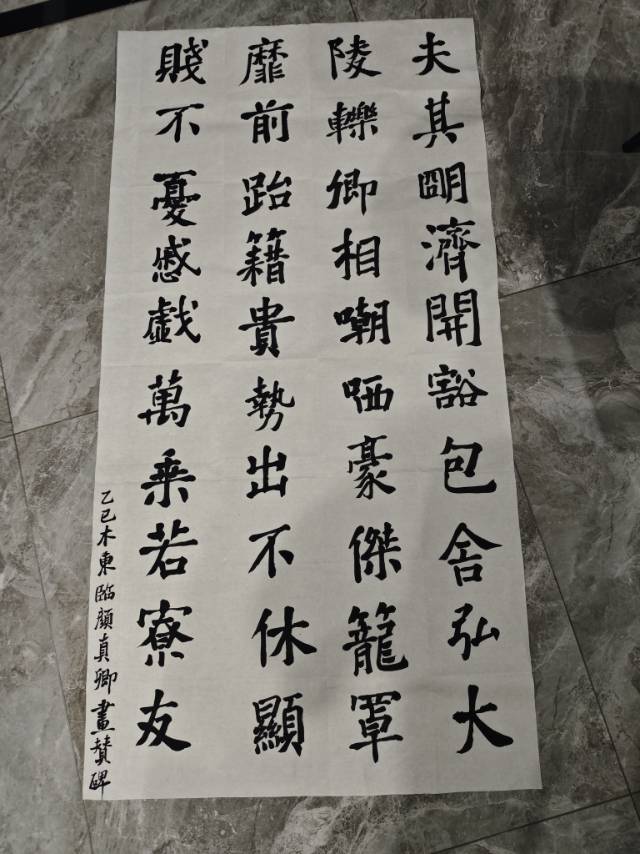 夫其明濟開豁包含弘大
陵轢卿相嘲哂豪傑籠罩
靡前跆籍貴勢出不休顯
賤不憂慼戱萬乘若寮友
乙巳木東臨顏真卿畫贊碑